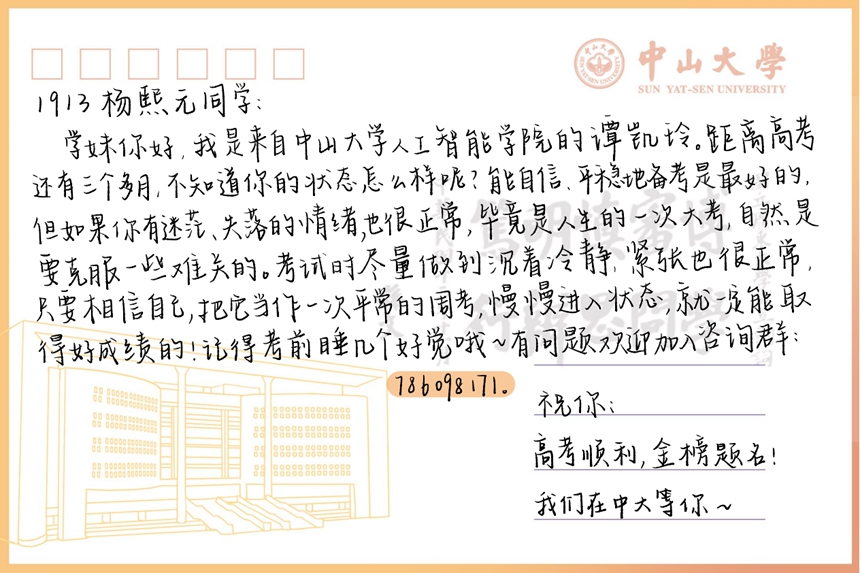 中山大学
SUN YAT-SEN UNIVERSITY
1913杨熙元同学:
学妹你好,我是来自中山大学人工智能学院的谭凯玲。距离高考
还有三个多月,不知道你的状态怎么样呢?能自信、平稳地备考是最好的,
但如果你有迷茫、失落的情绪,也很正常,毕竟是人生的一次大考,自然是
要克服一些难关的。考试时尽量做到沉着冷静,紧张也很正常,
只要相信自己,把它当作一次平常的周考,慢慢进入状态,就一定能取
得好成绩的!记得考前睡几个好觉哦~有问题欢迎加入咨询群:
786098171。
祝你:
高考顺利,金榜题名!
我们在中大等你~